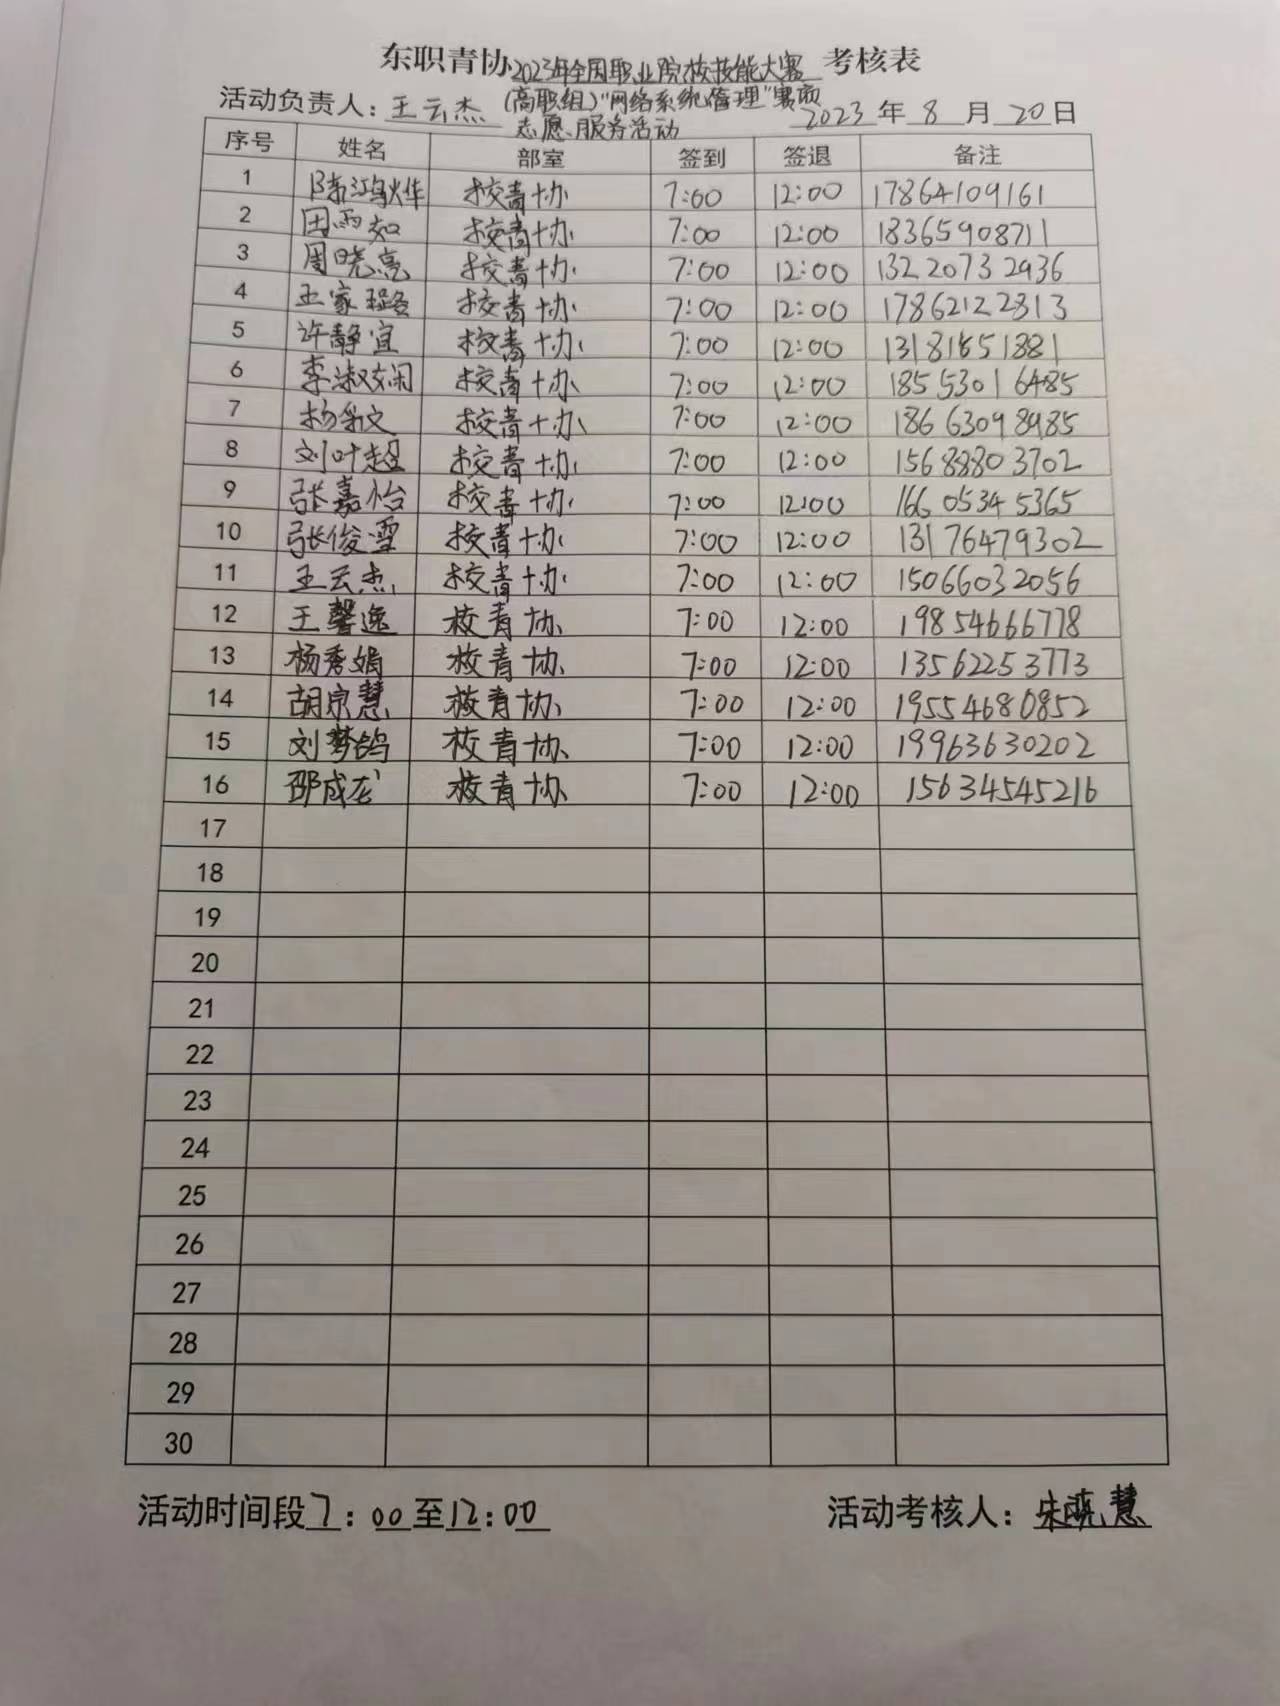 东职青协2023年全国职业院校技能大赛考核表
活动负责人：王云杰 (高职组)"网络系统管理"赛项 2023年8月20日
志愿服务活动
序号 姓名 部室 签到 签退 备注
1 陈鸿烨 校青协 7:00 12:00 17864109161
2 田雨如 校青协 7:00 12:00 18365908711
3 周晓亮 校青协 7:00 12:00 13220732936
4 王家璐 校青协 7:00 12:00 17862122313
5 许静宜 校青协 7:00 12:00 13181551881
6 李淑娴 校青协 7:00 12:00 18553016485
7 杨 文 校青协 7:00 12:00 18663098985
8 刘叶超 校青协 7:00 12:00 15688803702
9 张嘉怡 校青协 7:00 12:00 16605345365
10 张俊雪 校青协 7:00 12:00 13176479302
11 王云杰 校青协 7:00 12:00 15066032056
12 王馨逸 校青协 7:00 12:00 19854666778
13 杨秀娟 校青协 7:00 12:00 13562253773
14 胡宗慧 校青协 7:00 12:00 19554680852
15 刘梦鸽 校青协 7:00 12:00 19963630202
16 邵成龙 校青协 7:00 12:00 15634545216
17
18
19
20
21
22
23
24
25
26
27
28
29
30
活动时间段7:00至12:00 活动考核人：朱晓慧